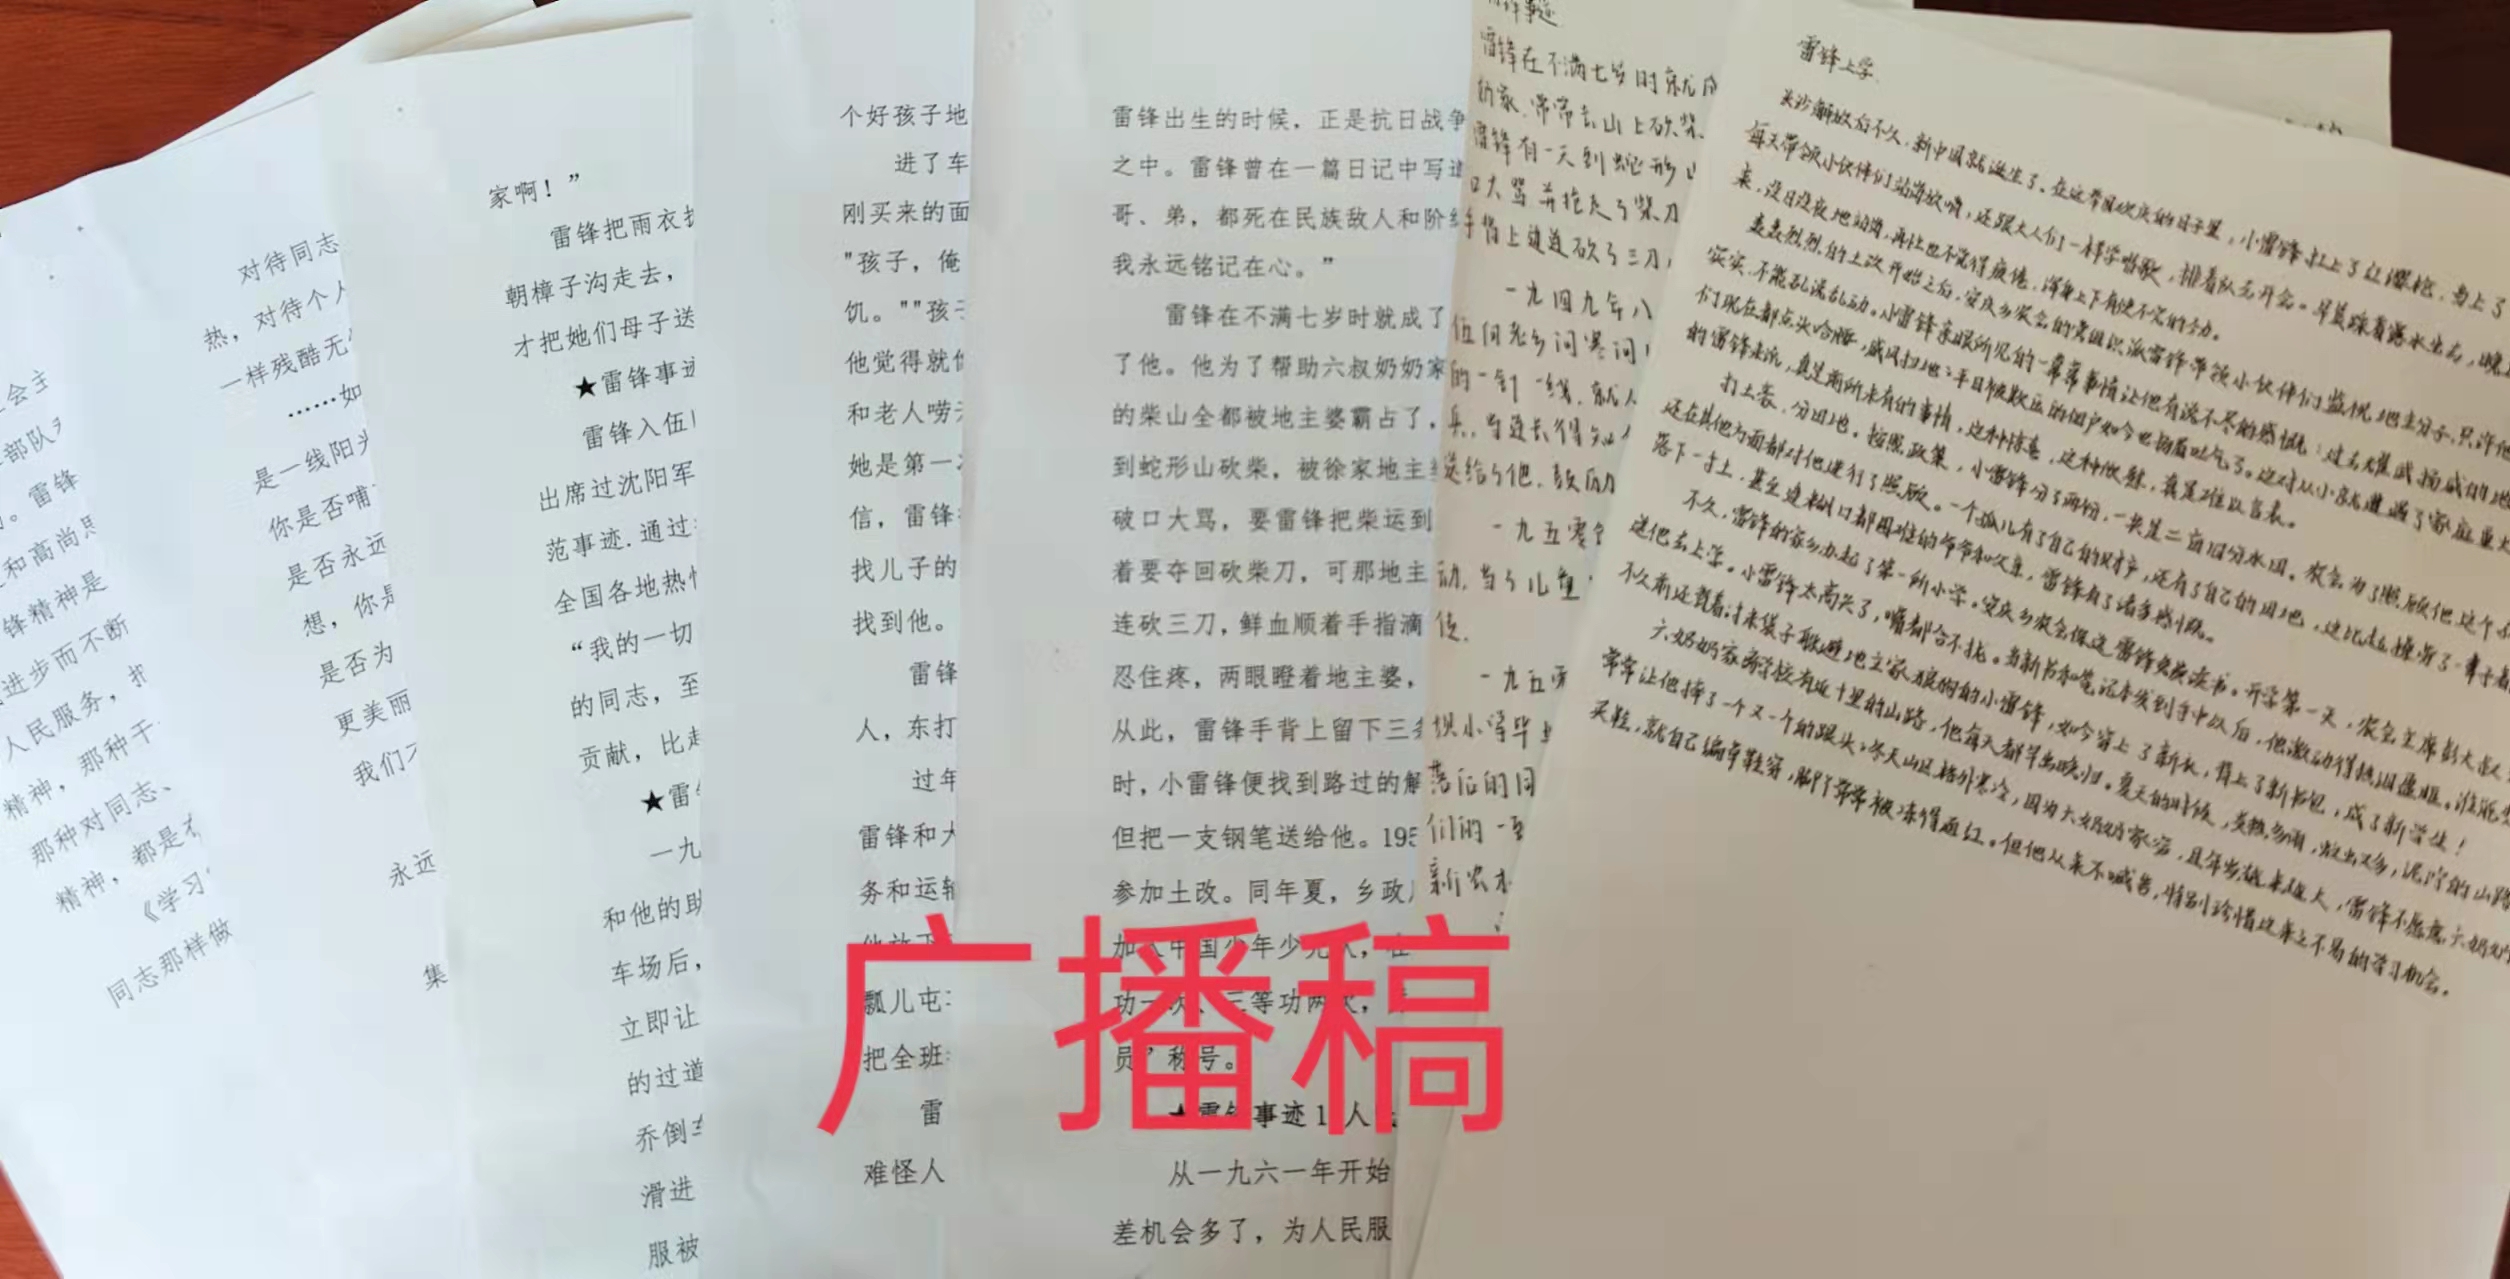 社会主
部队
。雷锋
和高尚思
锋精神是
进步而不断
人民服务,
精神,那种干
那种对同志、
精神,都是
《学习
同志那样做
对待同志
热,对待个人
一样残酷无
……如
是一线阳光
你是否哺
是否永远
想,你是
是否为
更美丽
我们
永远
集
家啊!”
雷锋把雨衣
朝樟子沟走去,
才把她们母子送
★雷锋事迹
雷锋入伍
出席过沈阳军
范事迹.通过
全国各地热
“我的一切
的同志,至
贡献,比
★雷
一九
和他的助
车场后,
立即让
的过道
乔倒
滑进
服被
个好孩子地
进了车
刚买来的面
"孩子,俺
饥。""孩
他觉得就
和老人唠
她是第一
信,雷锋
找儿子的
找到他。
雷锋
人,东打
过年
雷锋和大
务和运输
他放下
瓢儿屯
把全班
雷
难怪人
雷锋出生的时候,正是抗日战争
之中。雷锋曾在一篇日记中写道
哥、弟,都死在民族敌人和阶级
我永远铭记在心。”
雷锋在不满七岁时就成了
了他。他为了帮助六叔奶奶家
的柴山全都被地主婆霸占了,
到蛇形山砍柴,被徐家地主
破口大骂,要雷锋把柴运到
着要夺回砍柴刀,可那地主
连砍三刀,鲜血顺着手指滴
忍住疼,两眼瞪着地主婆,
从此,雷锋手背上留下三条
时,小雷锋便找到路过的解
但把一支钢笔送给他。195
参加土改。同年夏,乡政
加入中国少年先
功一次、三等功两次,
员”称号。
★雷锋事迹1 人
从一九六一年开始
差机会多了,为人民服
雷锋事迹
雷锋在不满七岁时就成
奶家,常常去山上砍柴、
雷锋有一天到蛇形山
口大骂并抢走了柴刀
手背上连连砍了三刀,
一九四九年八
伍向老乡问寒问
的一针一线,就
兵,当连长得知
送给了他,鼓励
一九五零
动,当了儿童
一九五
坝小学毕
落后的同
们的一
新农村
雷锋上学
长沙解放后不久,新中国就诞生了。在这举国欢庆的日子里,小雷锋扛上了红缨枪,当上了
每天带领小伙伴们站岗放哨,还跟大人们一样学唱歌,排着队去开会。早晨踩着露水生去,晚
来,没日没夜地站岗,再让也不觉得疲倦,浑身上下有使不完的力。
轰轰烈烈的土改开始之后,安庆乡农会的党组织派雷锋带领小伙伴们监视地主分子,只许他
实实,不能乱说乱动。小雷锋亲眼所见的一幕幕事情让他有说不尽的感慨:过去耀武扬威的地
们现在都点头哈腰,威风扫地;平日被欺压的佃户如今也扬眉吐气了。这对从小就遭遇了家庭重大
的雷锋来说,真是前所未有的事情,这种惊喜,这种欣慰,真是难以言表。
打土豪,分田地。按照政策,小雷锋分了两份,一共是二亩四分水田。农会为了照顾他这个
还在其他方面都对他进行了照顾。一个孤儿有了自己的财产,还有了自己的田地,这比起操劳了一辈子都
落下一寸土,甚至连糊口都困难的爷爷和父亲,雷锋有了诸多感慨。
不久,雷锋的家乡办起了第一所小学。安庆乡农会保送雷锋免费读书。开学第一天,农会主席彭大叔
送他去上学。小雷锋太高兴了,嘴都合不拢。当新书和笔记本发到手中以后,他激动得热泪盈眶。谁能
不久前还背着讨米袋子躲避地主家狼狗的小雷锋,如今穿上了新衣,背上了新书包,成了新学生!
六奶奶家离学校有近十里的山路,他每天都早出晚归。夏天的时候,炎热多雨,放出又多,泥泞的山路
常常让他摔了一个又一个的跟头;冬天山区格外寒冷,因为六奶奶家穷,且年岁越来越大,雷锋不愿意六奶奶
买鞋,就自己编草鞋穿,脚丫常常被冻得通红。但他从来不喊苦,特别珍惜这来之不易的学习机会。
广播稿